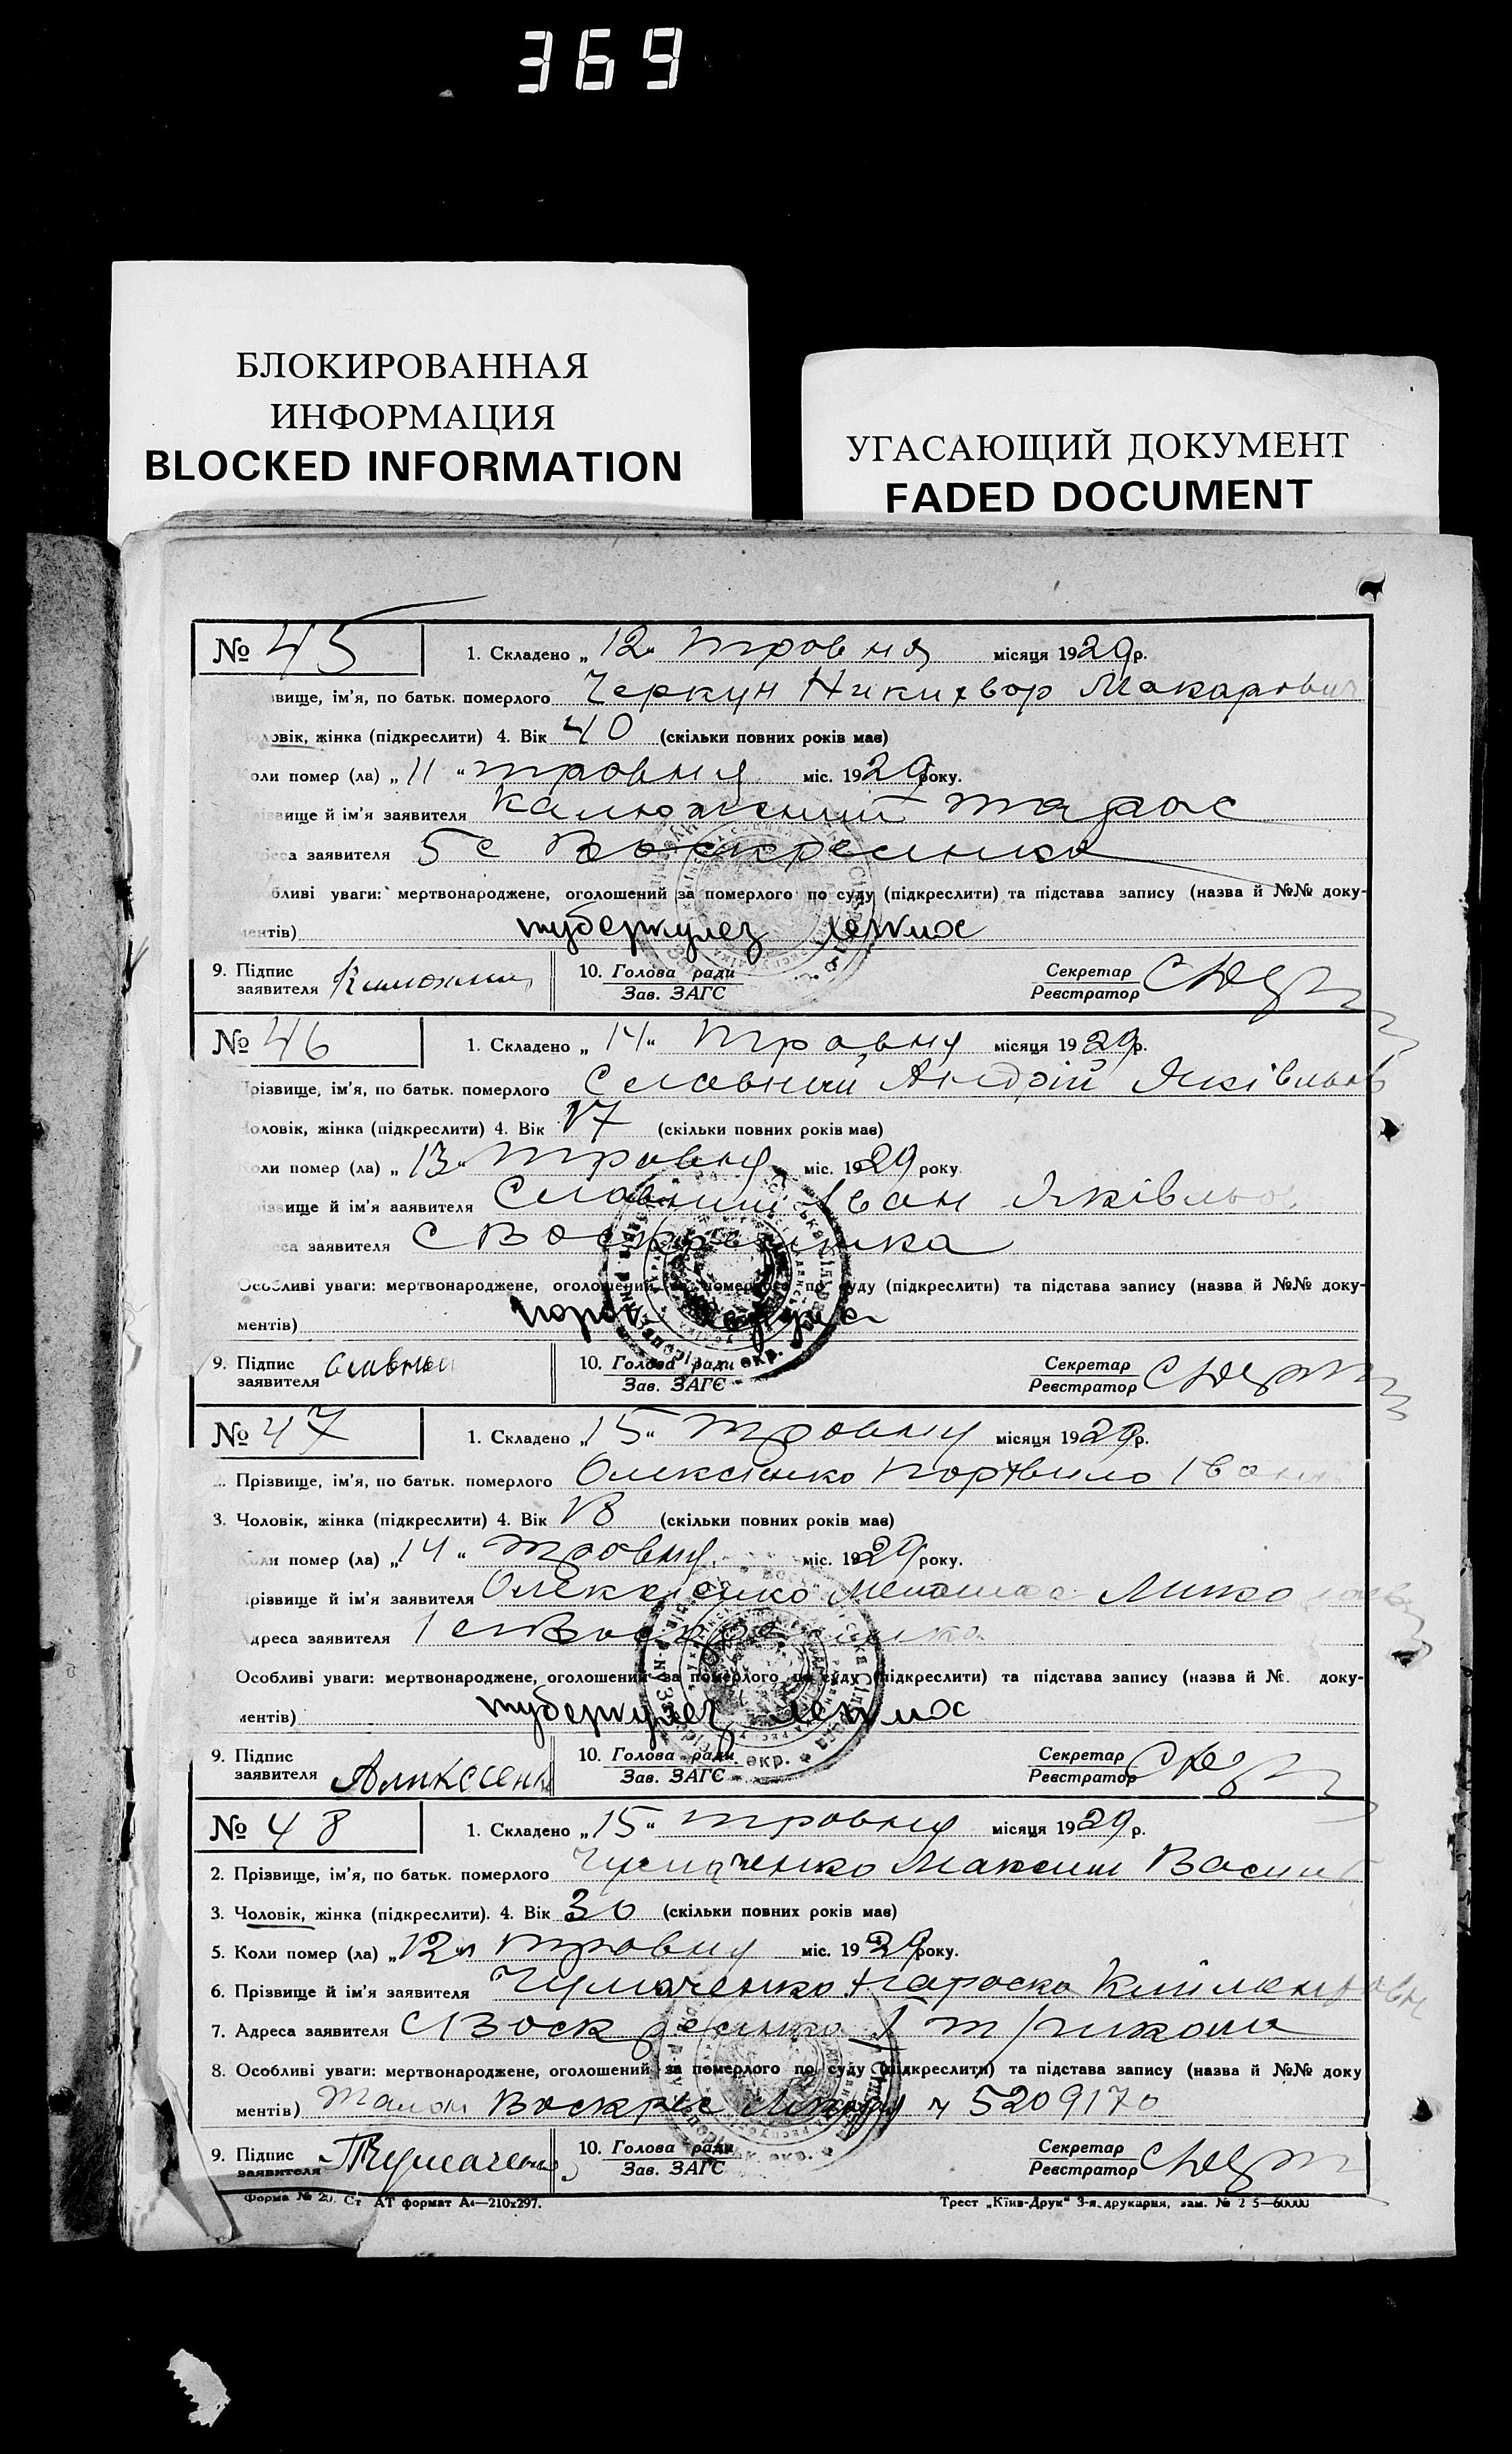 369
БЛОКИРОВАННАЯ
ИНФОРМАЦИЯ
BLOCKED INFORMATION
УГАСАЮЩИЙ ДОКУМЕНТ
FADED DOCUMENT
№ 45 1. Складено „12“ травня місяця 1929 р.
звище, ім’я, по батьк. померлого Черкун Никихвор Макарович
ловік, жінка (підкреслити) 4. Вік 40 (скільки повних років має)
оли помер (ла) „11“ травня міс. 1929 року.
звище й ім’я заявителя Калюжний Тарас
еса заявителя 5 с Воскресенка
бливі уваги: мертвонароджене, оголошений за померлого по суду (підкреслити) та підстава запису (назва й №№ доку-
ментів) туберкулез легких
9. Підпис заявителя 10. Голова ради Зав. ЗАГС Секретар Реєстратор
№ 46 1. Складено „14“ травня місяця 1929 р.
Прізвище, ім’я, по батьк. померлого Славний Андрій Яківльов
Чоловік, жінка (підкреслити) 4. Вік 17 (скільки повних років має)
Коли помер (ла) „13“ травня міс. 1929 року.
ізвище й ім’я заявителя Славний Іван Яківльов
еса заявителя с Воскресенка
Особливі уваги: мертвонароджене, оголошений за померлого по суду (підкреслити) та підстава запису (назва й №№ доку-
ментів) порок
9. Підпис заявителя Славний 10. Голова ради Зав. ЗАГС Секретар Реєстратор
№ 47 1. Складено „15“ травня місяця 1929 р.
Прізвище, ім’я, по батьк. померлого Олексієнко Порхвило Іван
3. Чоловік, жінка (підкреслити) 4. Вік 18 (скільки повних років має)
Коли помер (ла) „14“ травня міс. 1929 року.
Прізвище й ім’я заявителя Олексієнко
Адреса заявителя 1 с Воскресенка
Особливі уваги: мертвонароджене, оголошений за померлого по суду (підкреслити) та підстава запису (назва й № доку-
ментів) туберкулез легких
9. Підпис заявителя Аликсеенк 10. Голова ради Зав. ЗАГС Секретар Реєстратор
№ 48 1. Складено „15“ травня місяця 1929 р.
2. Прізвище, ім’я, по батьк. померлого Чумаченко Максим Васил
3. Чоловік, жінка (підкреслити). 4. Вік 30 (скільки повних років має)
5. Коли помер (ла) „12“ травня міс. 1929 року.
6. Прізвище й ім’я заявителя Чумаченко
7. Адреса заявителя с Воскресенка
8. Особливі уваги: мертвонароджене, оголошений за померлого по суду (підкреслити) та підстава запису (назва й №№ доку
ментів) Талон Воскрес 5209170
9. Підпис заявителя 10. Голова ради Зав. ЗАГС Секретар Реєстратор
Форма № 20. Ст АТ формат А4—210х297. Трест „Київ-Друк“ 3-я друкарня, зам. № 2 5—60000